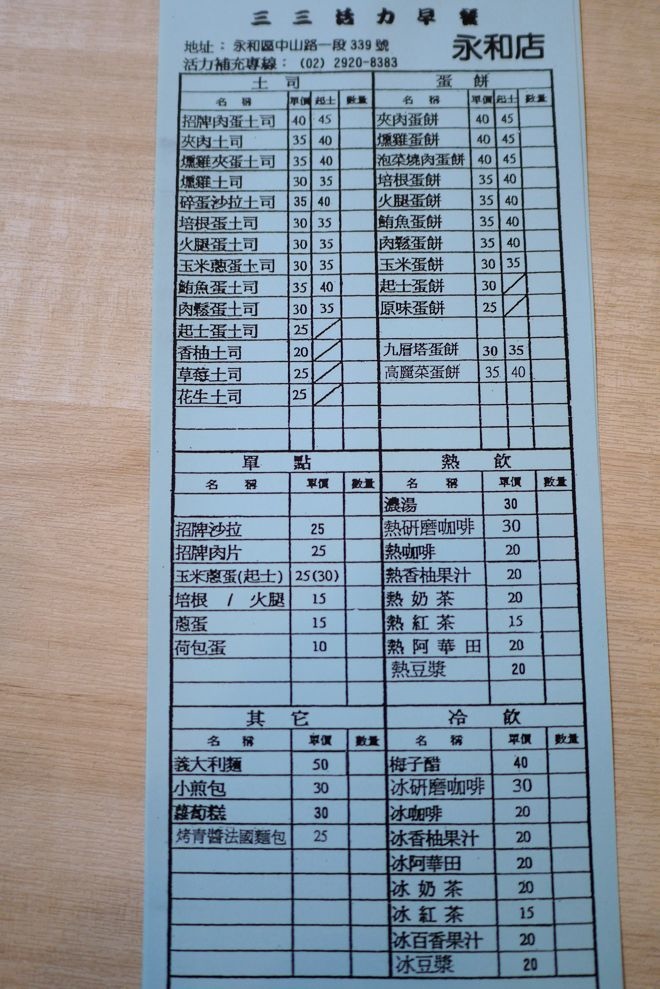 三三活力早餐
地址：永和區中山路一段339號
永和店
活力補充專線：(02) 2920-8383
土司
名稱 單價 起士 數量
招牌肉蛋土司 40 45
夾肉土司 35 40
燻雞夾蛋土司 35 40
燻雞土司 30 35
碎蛋沙拉土司 35 40
培根蛋土司 30 35
火腿蛋土司 30 35
玉米蔥蛋土司 30 35
鮪魚蛋土司 35 40
肉鬆蛋土司 30 35
起士蛋土司 25
香柚土司 20
草莓土司 25
花生土司 25
蛋餅
名稱 單價 起士 數量
夾肉蛋餅 40 45
燻雞蛋餅 40 45
泡菜燒肉蛋餅 40 45
培根蛋餅 35 40
火腿蛋餅 35 40
鮪魚蛋餅 35 40
肉鬆蛋餅 35 40
玉米蛋餅 30 35
起士蛋餅 30
原味蛋餅 25
九層塔蛋餅 30 35
高麗菜蛋餅 35 40
單點
名稱 單價 數量
招牌沙拉 25
招牌肉片 25
玉米蔥蛋(起士) 25(30)
培根 / 火腿 15
蔥蛋 15
荷包蛋 10
熱飲
名稱 單價 數量
濃湯 30
熱研磨咖啡 30
熱咖啡 20
熱香柚果汁 20
熱奶茶 20
熱紅茶 15
熱阿華田 20
熱豆漿 20
其它
名稱 單價 數量
義大利麵 50
小煎包 30
蘿蔔糕 30
烤青醬法國麵包 25
冷飲
名稱 單價 數量
梅子醋 40
冰研磨咖啡 30
冰咖啡 20
冰香柚果汁 20
冰阿華田 20
冰奶茶 20
冰紅茶 15
冰百香果汁 20
冰豆漿 20